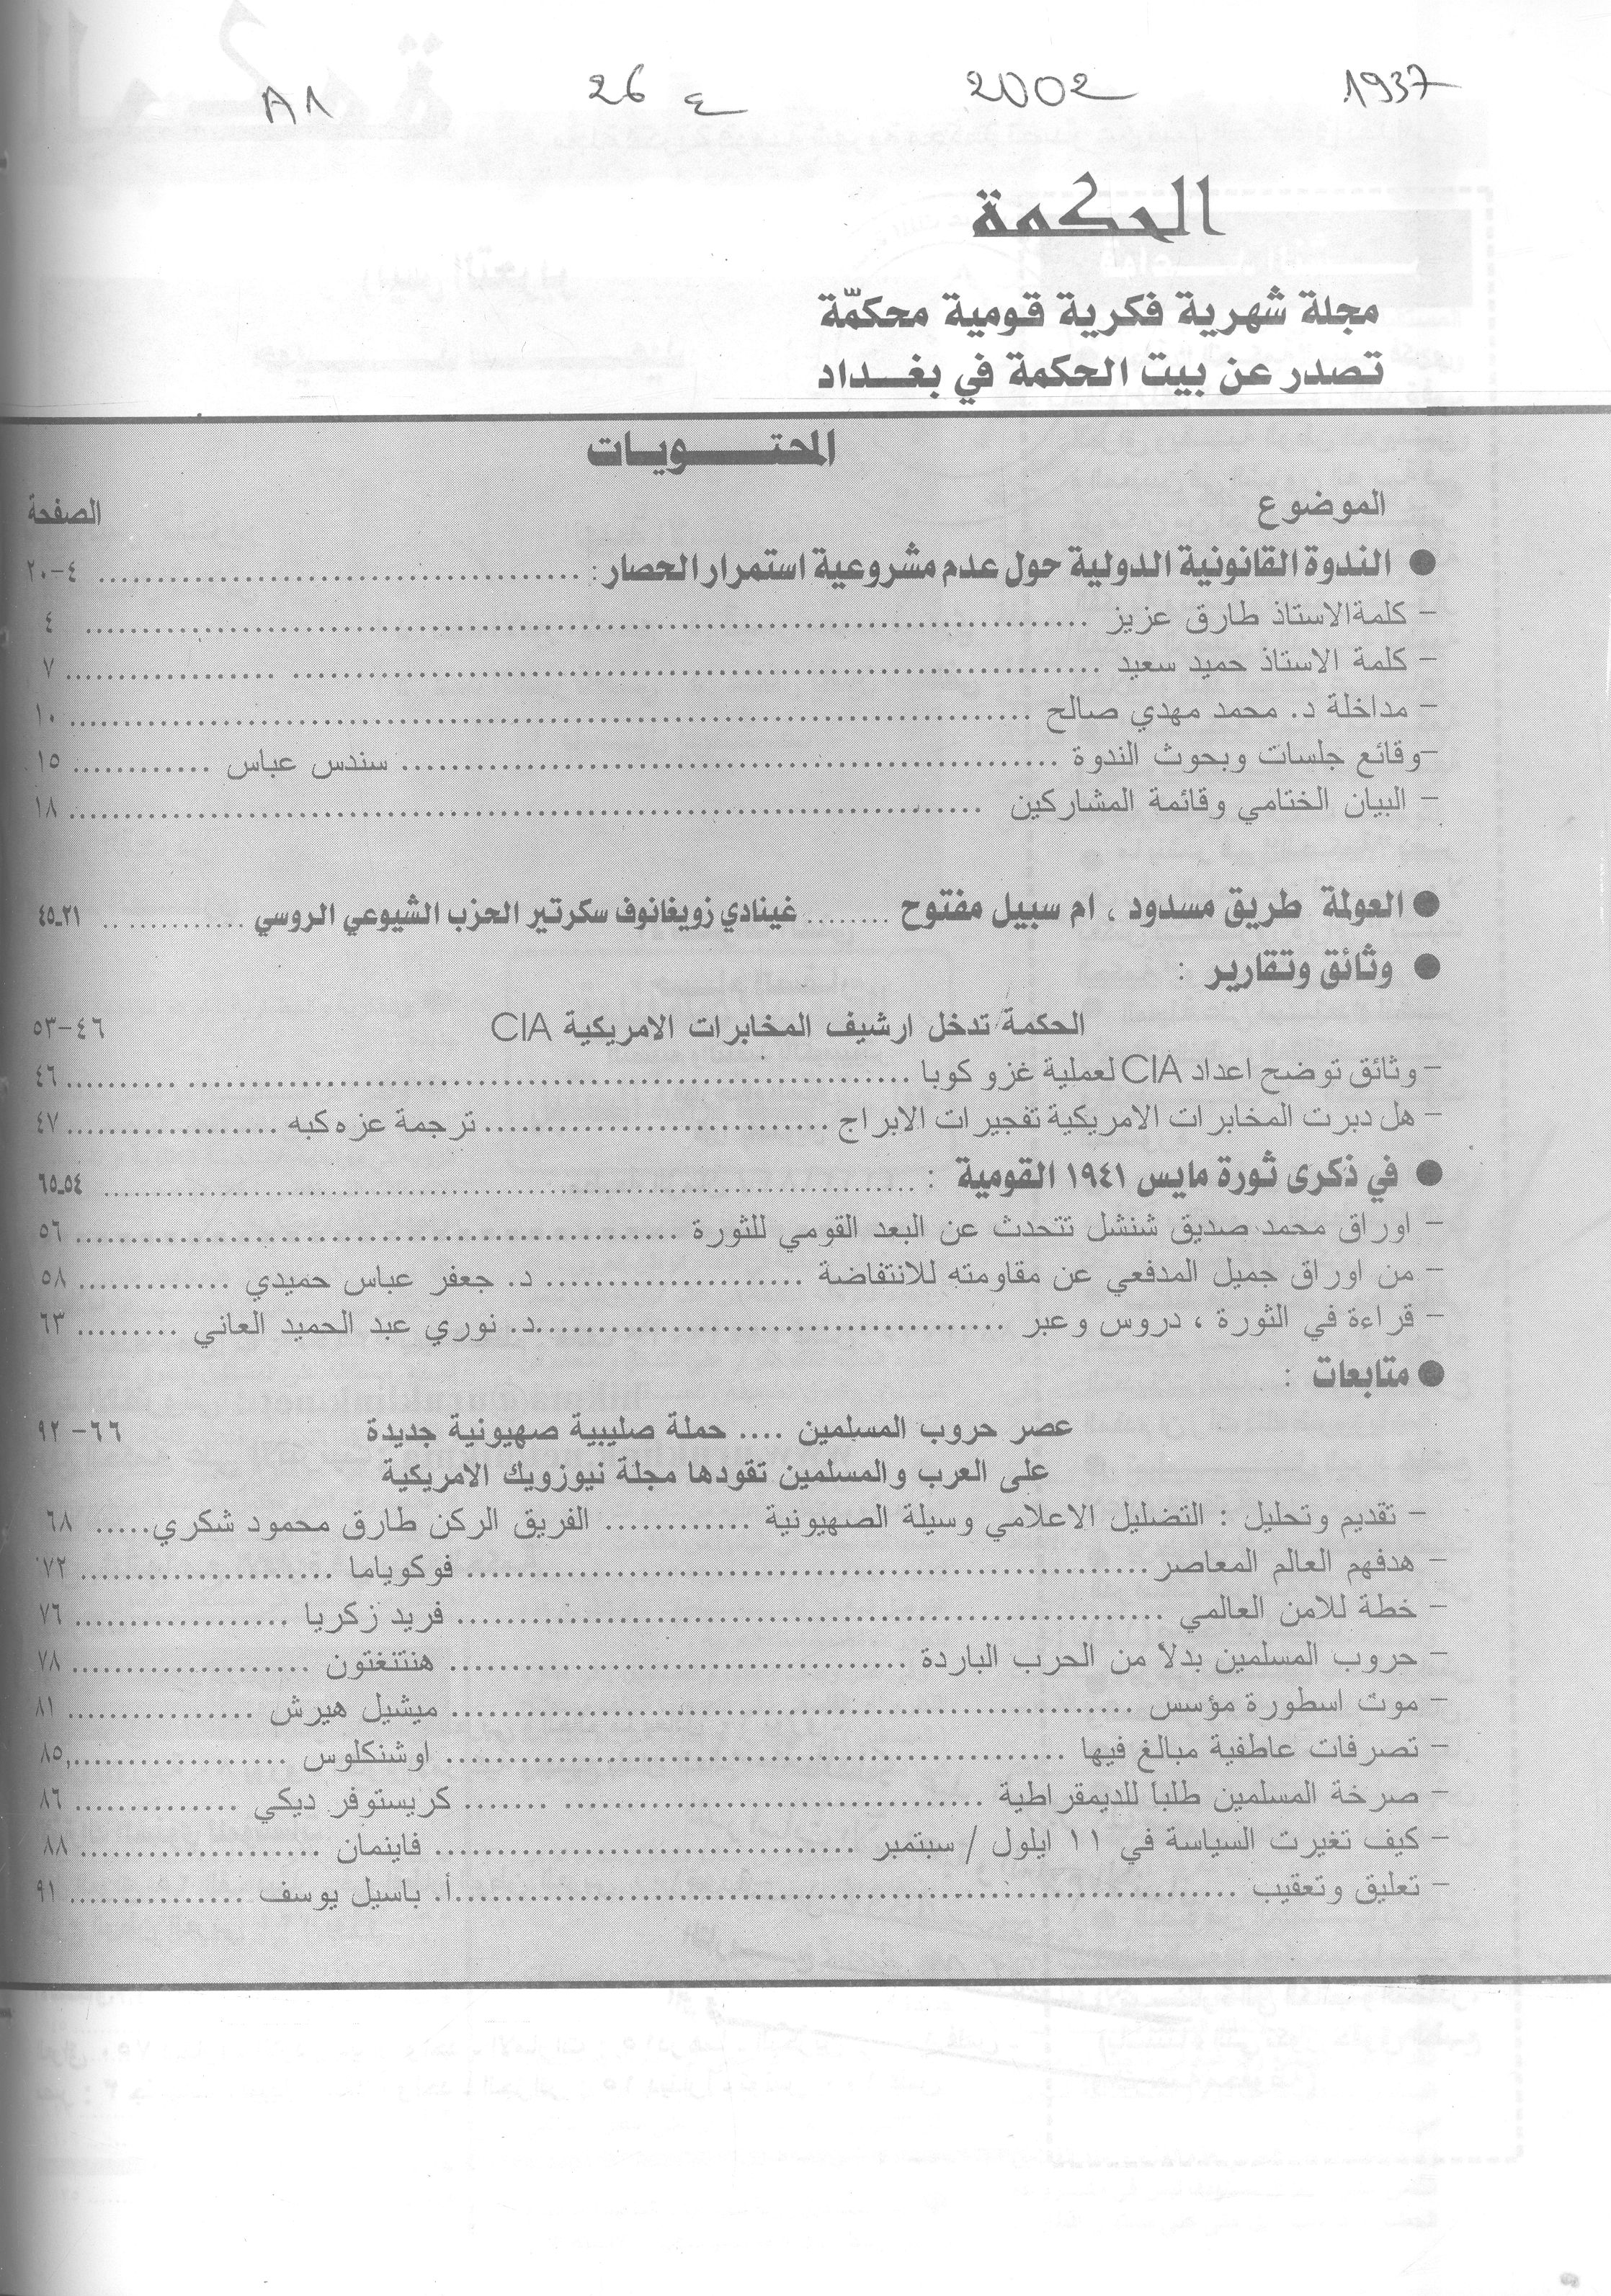 1937 2002 26 ع A1
الحكمة
مجلة شهرية فكرية قومية محكمّة
تصدر عن بيت الحكمة في بغـــداد
المحتـــــويـات
الموضوع الصفحة
● الندوة القانونية الدولية حول عدم مشروعية استمرار الحصار: ........ ٤-٢٠
- كلمةالاستاذ طارق عزيز ........ ٤
- كلمة الاستاذ حميد سعيد ........ ٧
- مداخلة د. محمد مهدي صالح ........ ١٠
-وقائع جلسات وبحوث الندوة ........ سندس عباس ........ ١٥
- البيان الختامي وقائمة المشاركين ........ ١٨
● العولمة طريق مسدود ، ام سبيل مفتوح ........ غينادي زويغانوف سكرتير الحزب الشيوعي الروسي ........ ٢١ـ٤٥
● وثائق وتقارير :
الحكمة تدخل ارشيف المخابرات الامريكية CIA ٤٦-٥٣
- وثائق توضح اعداد CIA لعملية غزو كوبا ........ ٤٦
- هل دبرت المخابرات الامريكية تفجيرات الابراج ........ ترجمة عزه كبه ........ ٤٧
● في ذكرى ثورة مايس ١٩٤١ القومية : ........ ٥٤ـ٦٥
- اوراق محمد صديق شنشل تتحدث عن البعد القومي للثورة ........ ٥٦
- من اوراق جميل المدفعي عن مقاومته للانتفاضة ........ د. جعفر عباس حميدي ........ ٥٨
- قراءة في الثورة ، دروس وعبر ........ د. نوري عبد الحميد العاني ........ ٦٣
● متابعات :
عصر حروب المسلمين .... حملة صليبية صهيونية جديدة ٦٦- ٩٢
على العرب والمسلمين تقودها مجلة نيوزويك الامريكية
- تقديم وتحليل : التضليل الاعلامي وسيلة الصهيونية ........ الفريق الركن طارق محمود شكري..... ٦٨
- هدفهم العالم المعاصر ........ فوكوياما ........ ٧٢
- خطة للامن العالمي ........ فريد زكريا ........ ٧٦
- حروب المسلمين بدلاً من الحرب الباردة ........ هنتنغتون ........ ٧٨
- موت اسطورة مؤسس ........ ميشيل هيرش ........ ٨١
- تصرفات عاطفية مبالغ فيها ........ اوشنكلوس ........ ٨٥
- صرخة المسلمين طلبا للديمقراطية ........ كريستوفر ديكي ........ ٨٦
- كيف تغيرت السياسة في ١١ ايلول / سبتمبر ........ فاينمان ........ ٨٨
- تعليق وتعقيب ........ أ. باسيل يوسف ........ ٩١